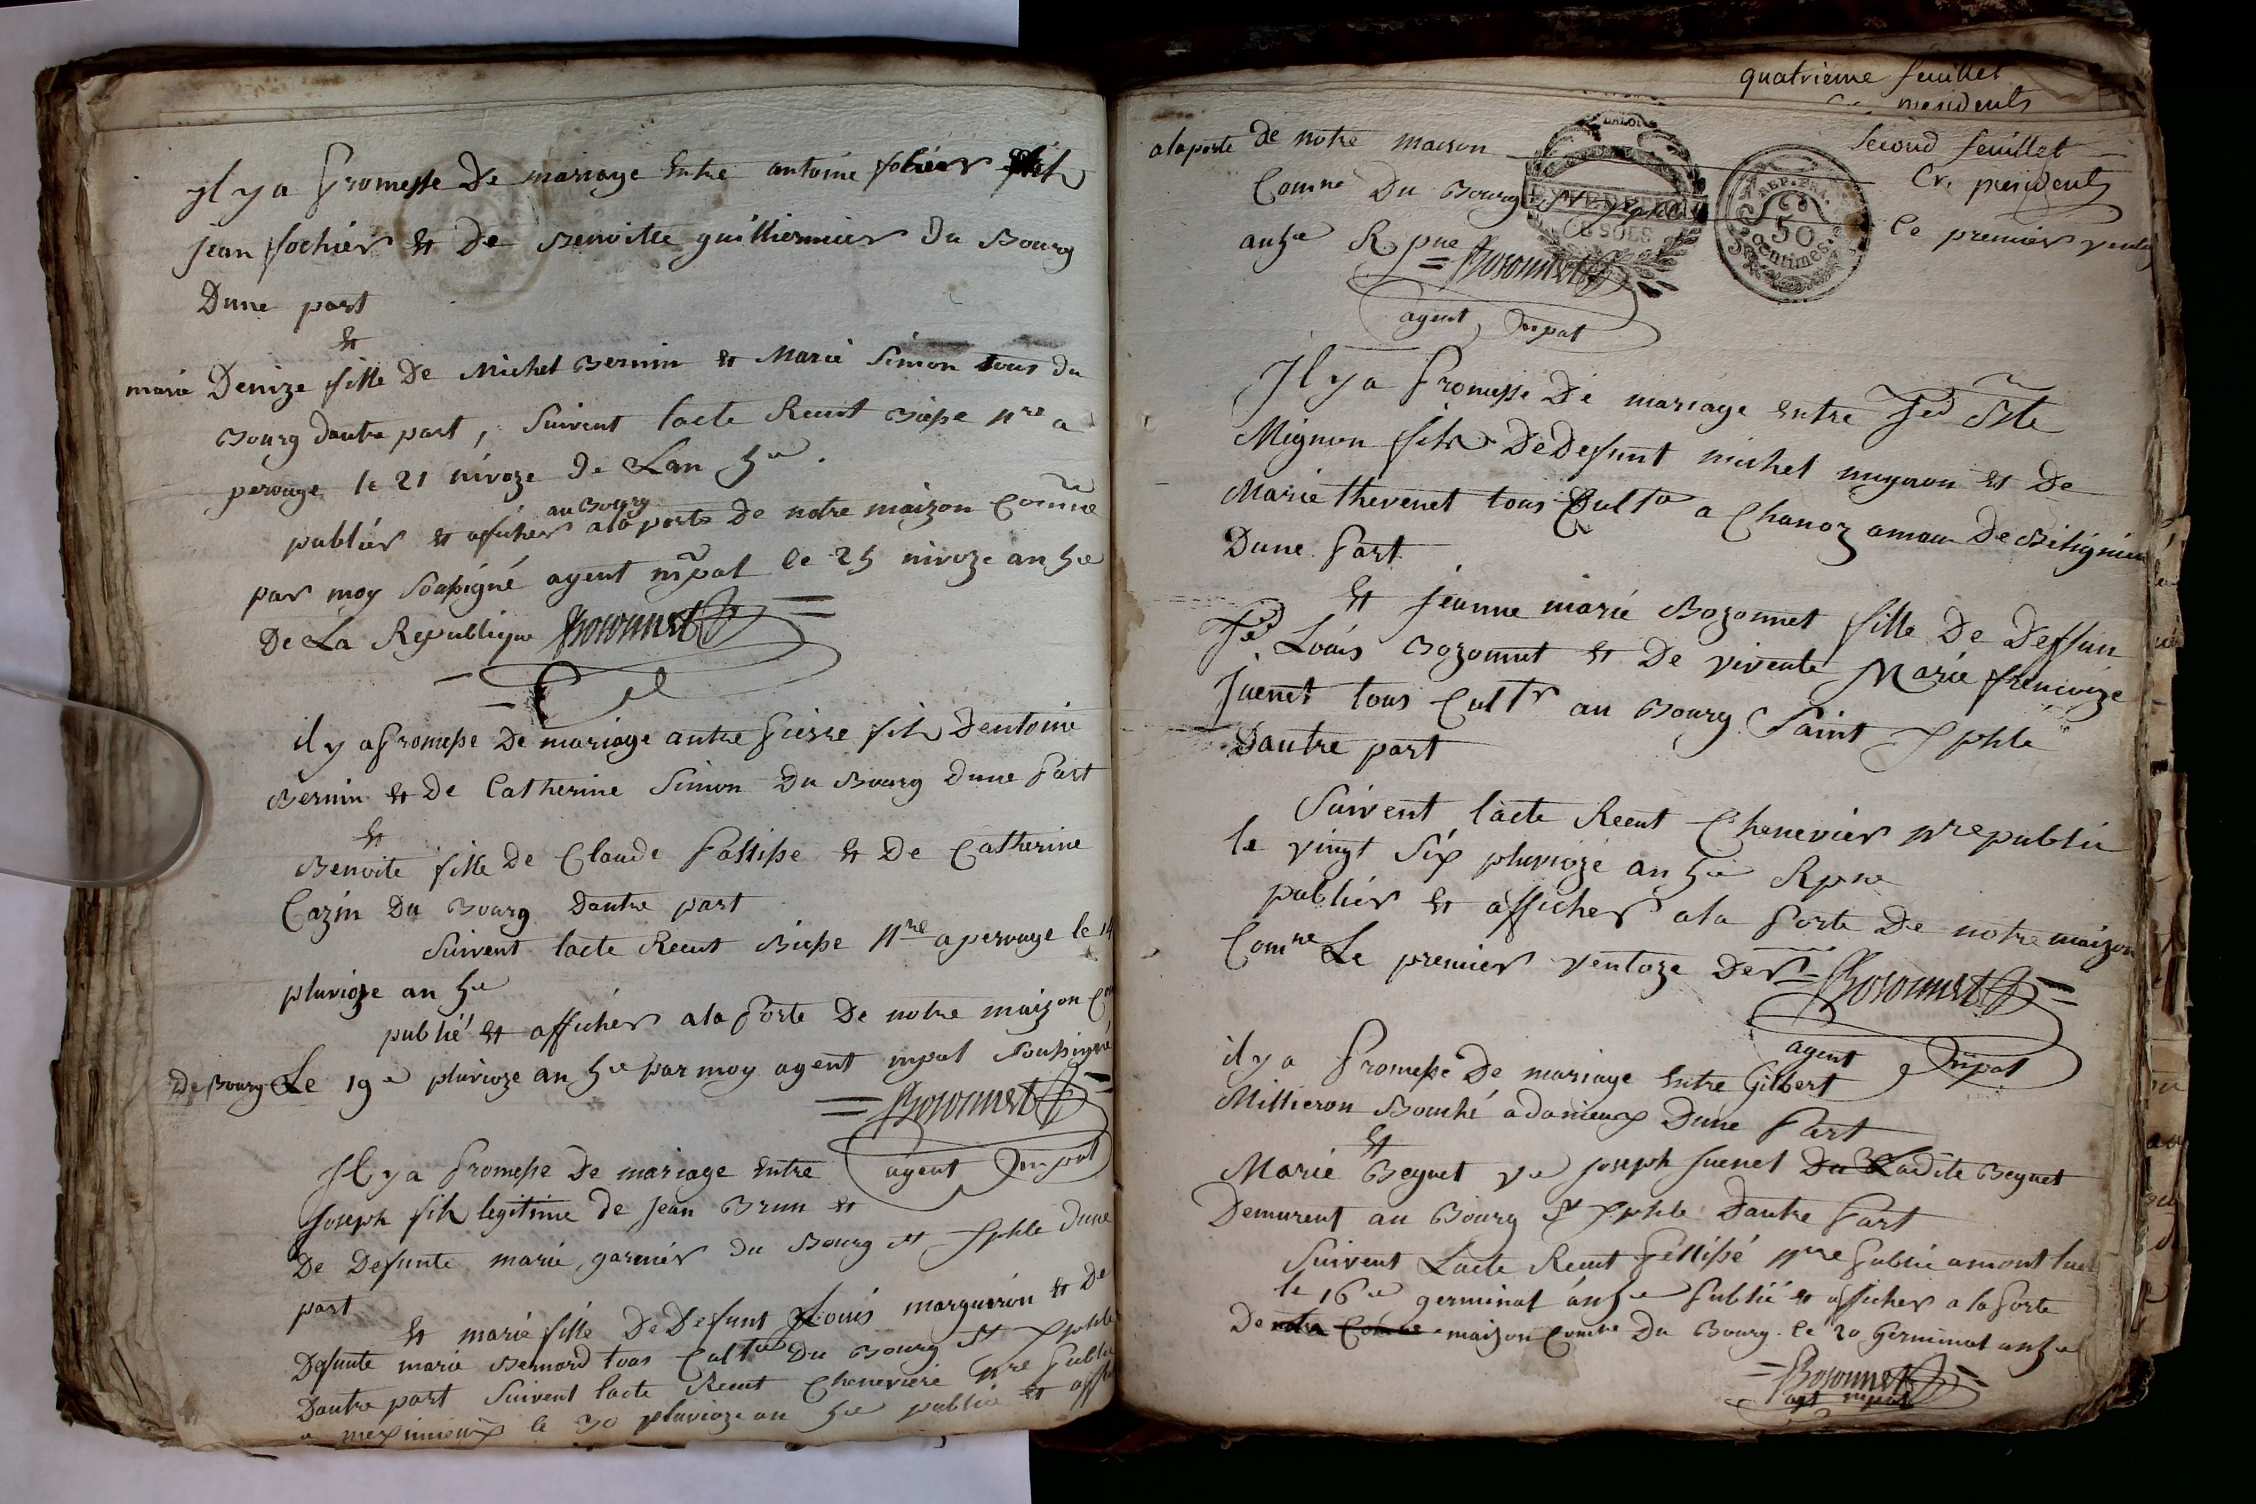 il y a promesse De mariage Entre antoine fochier fils
jean fochier et De Benoitte guilliermier Du Bourg
Dune part
et
marie Denize fille De Michel Bernin et Marie Simon tous du
Bourg dautre part, Suivent lacte Recut Biesse nre a
perouge le 21 nivoze de Lan 5e.
au Bourg
publier et aficher ala porte De notre maizon Comne
par moy Sousigné agent mpal le 25 nivoze an 5e
De La Republique Bozonnet
il y a promesse De mariage antre pierre fils Dentoine
Bernin et De Catherine Simon Du Bourg Dune part
et
Benoite fille De Claude et De Catherine
Cazin Du Bourg Dautre part
Suivent lacte Recut Biesse nre a perouge le 14
pluvioze an 5e
publié et afficher ala porte De notre maizon
De Bourg Le 19e pluvioze an 5e par moy agent mpal Sousigné
Bozonnet
agent mpal
Il y a promesse De mariage Entre
Joseph fils legitime de Jean Brun et
De Defunte marie garnier du Bourg St Xphle Dune
part
et marie fille De Defunt Louis marguiron et De
Defunte marie Bernard tous Cultrs Du Bourg St Xphle
Dautre part Suivent lacte Recut Cheneviere nre public
a meximieux le 30 pluvioze an 5e publié et
quatrieme feuillet
Second feuillet
Cr. president
ce premier
LA LOI
REP. FRA.
50
centimes
ala porte de notre maison
Comne Du Bourg St Xphle
an 5e Rpue Bozonnet
agent mpal
Il y a promesse De mariage entre Jh Bte
Mignon fils De Defunt michel mignon et De
Marie thevenet tous Cultrs a Chanoz De
Dune part
et jeanne marie Bozonnet fille De Deffun
Jh Louis Bozonnet et De vivente Marie frencoize
Juenet tous Cultrs au Bourg Saint Xphle
Dautre part
Suivent lacte Recut Chenevier nre public
le vingt Six pluvioze an 5e Rpue
publier et afficher ala porte De notre maizon
Comne Le premier ventoze Bozonnet
agent mpal
il y a promesse De mariage Entre Gilbert
Millieron a Dune part
et
Marie Beguet ve joseph juenet Du Ladite Beguet
Demurent au Bourg St Xphle Dautre part
Suivent Lacte Recut nre public a montluel
le 16e germinal an 5e publié et afficher a la porte
De notre Comne maizon Comne Du Bourg le 20 Germinal an 5e
Bozonnet
agt mpal